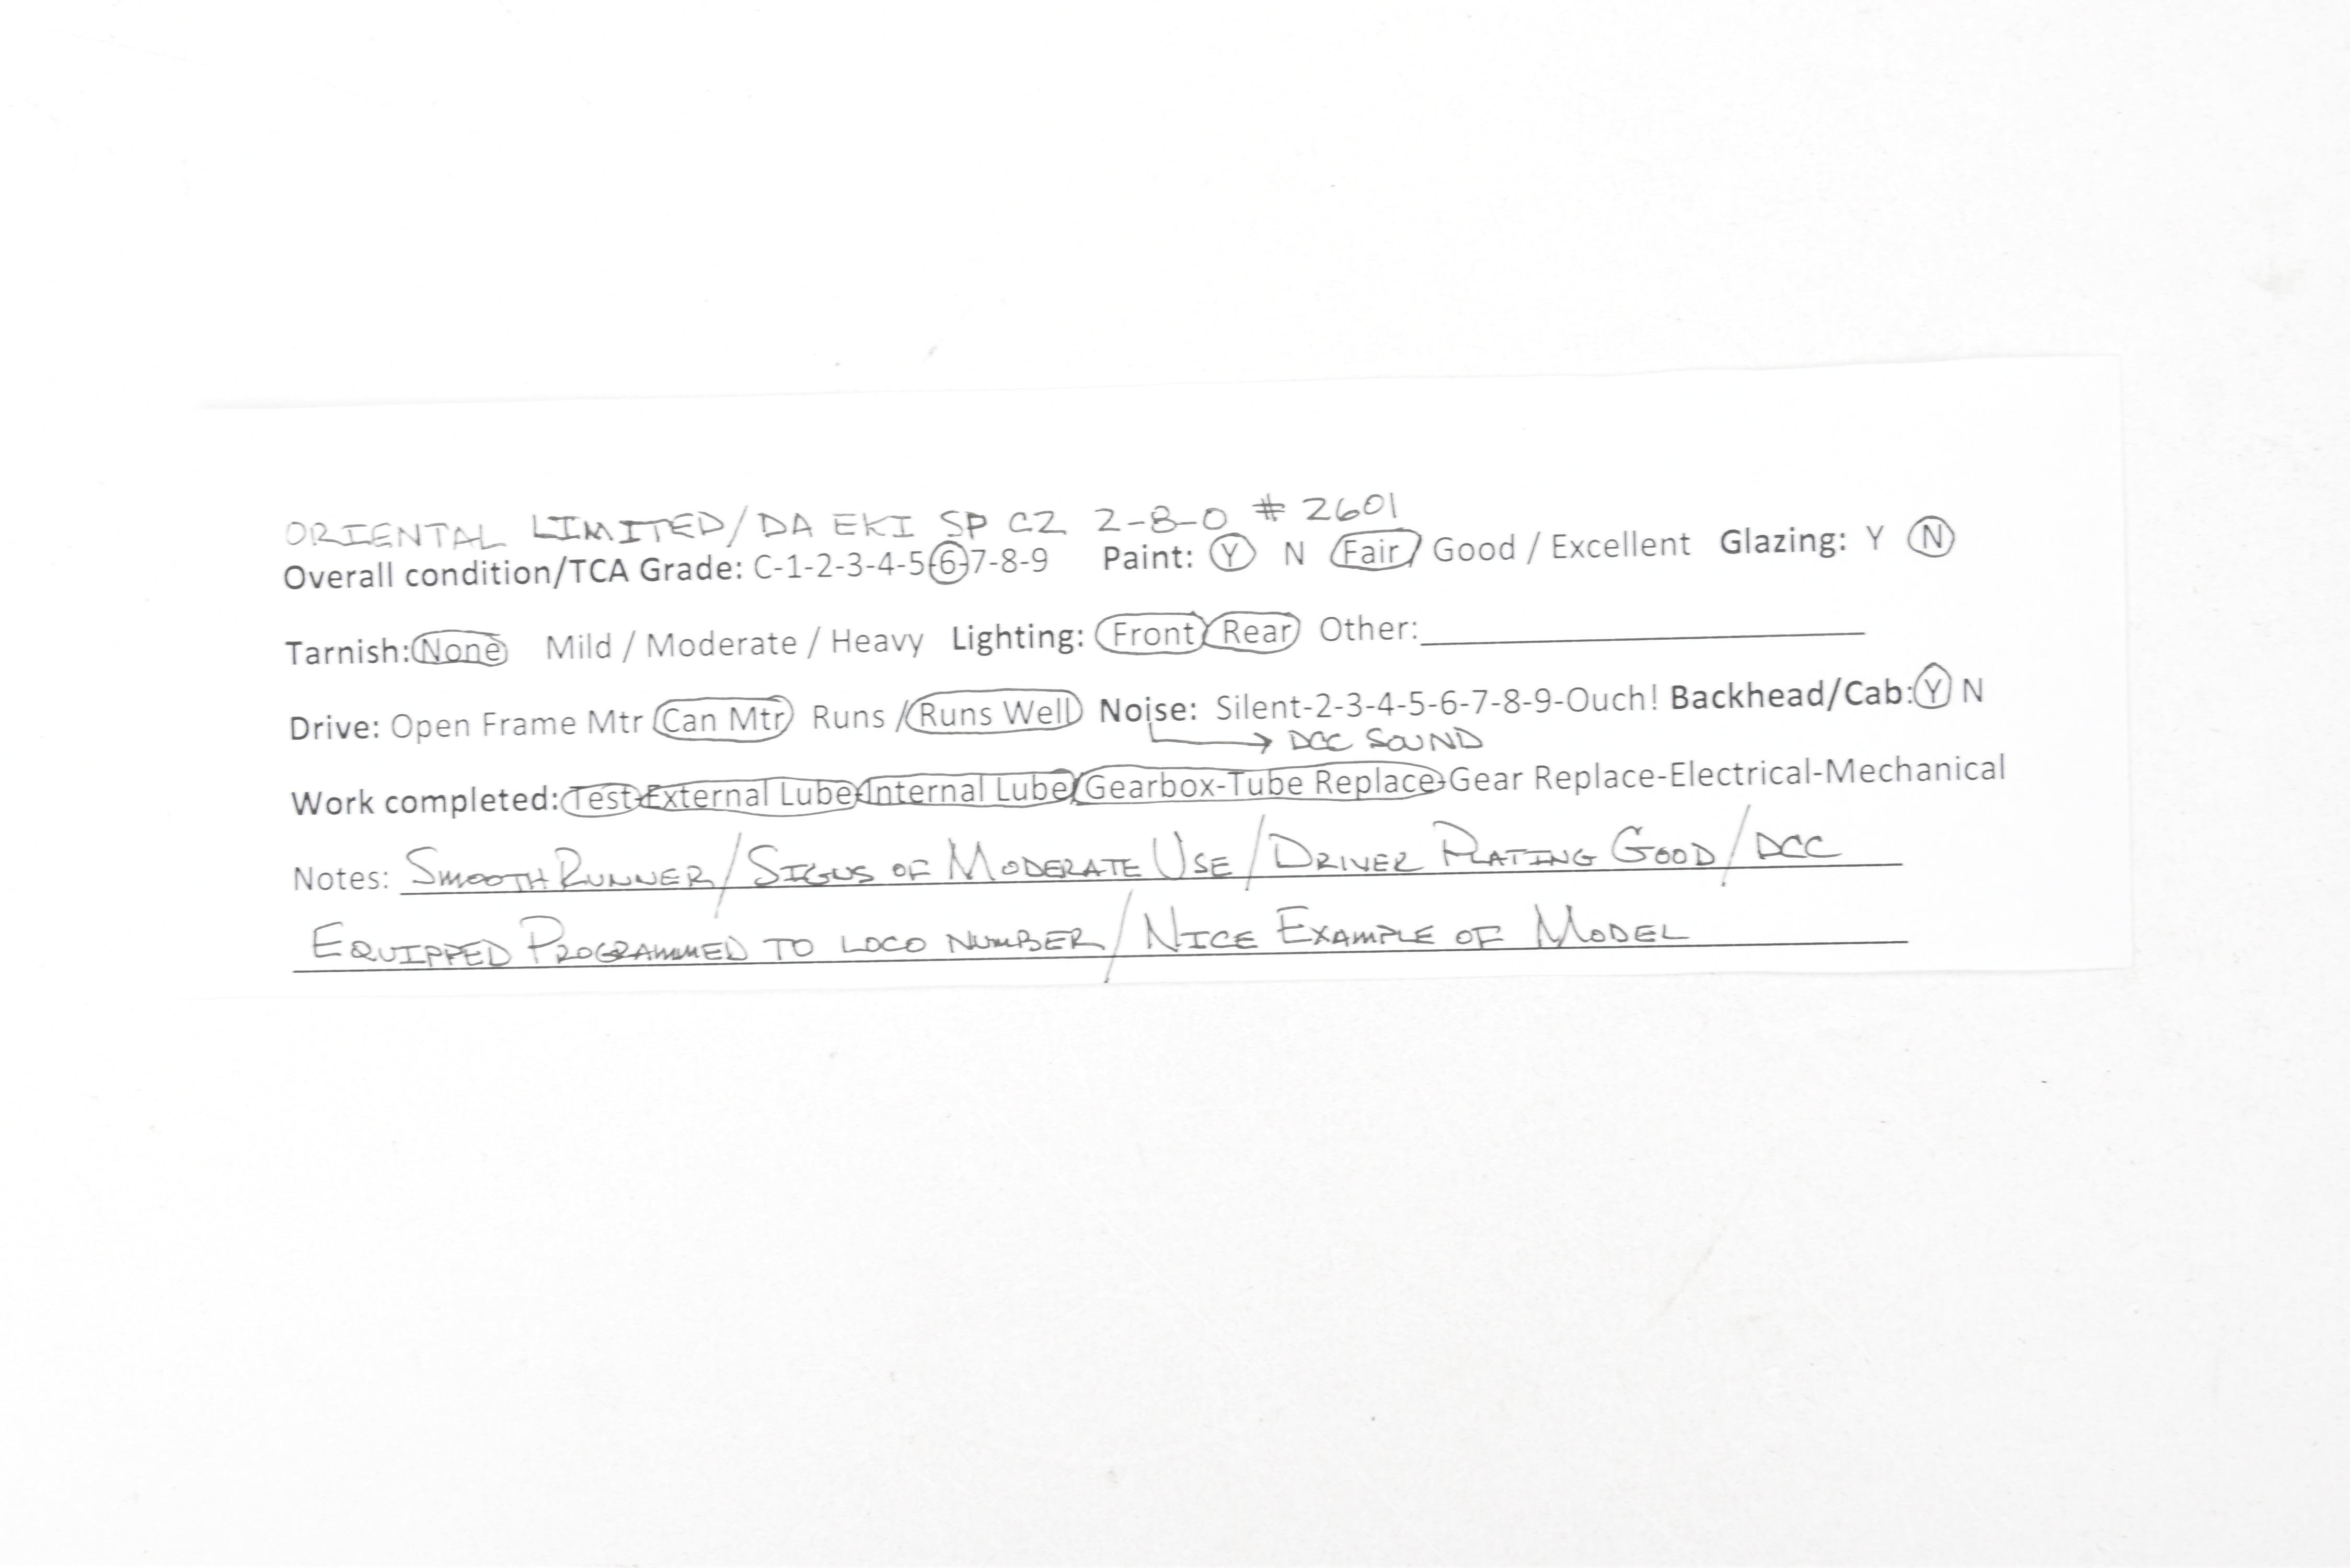 ORIENTAL LIMITED/DA EKI SP C2 2-8-0 # 2601
Overall condition/TCA Grade: C-1-2-3-4-5-6-7-8-9 Paint: Y N Fair / Good / Excellent Glazing: Y N
Tarnish: None Mild / Moderate / Heavy Lighting: Front / Rear Other:
Drive: Open Frame Mtr / Can Mtr Runs / Runs Well Noise: Silent-2-3-4-5-6-7-8-9-Ouch! Backhead/Cab: Y N
→ DCC SOUND
Work completed: Test-External Lube-Internal Lube-Gearbox-Tube Replace-Gear Replace-Electrical-Mechanical
Notes: SMOOTH RUNNER/SIGNS OF MODERATE USE/DRIVER PLATING GOOD/DCC
EQUIPPED PROGRAMMED TO LOCO NUMBER/NICE EXAMPLE OF MODEL